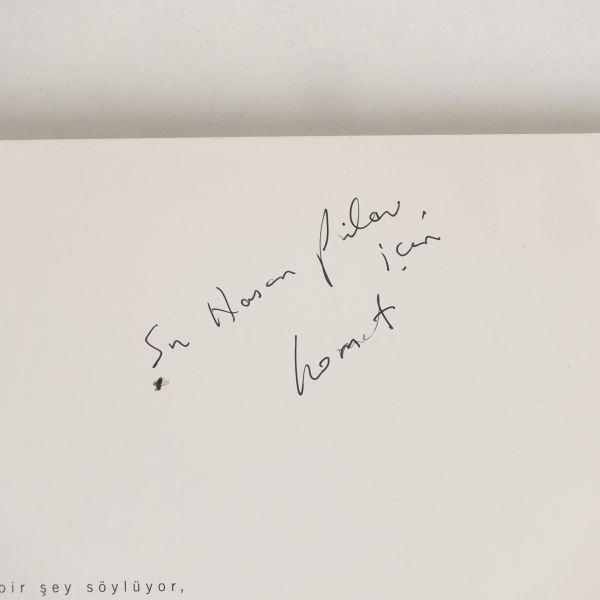 Sn Hasan Pilav
için
Komet
bir şey söylüyor,